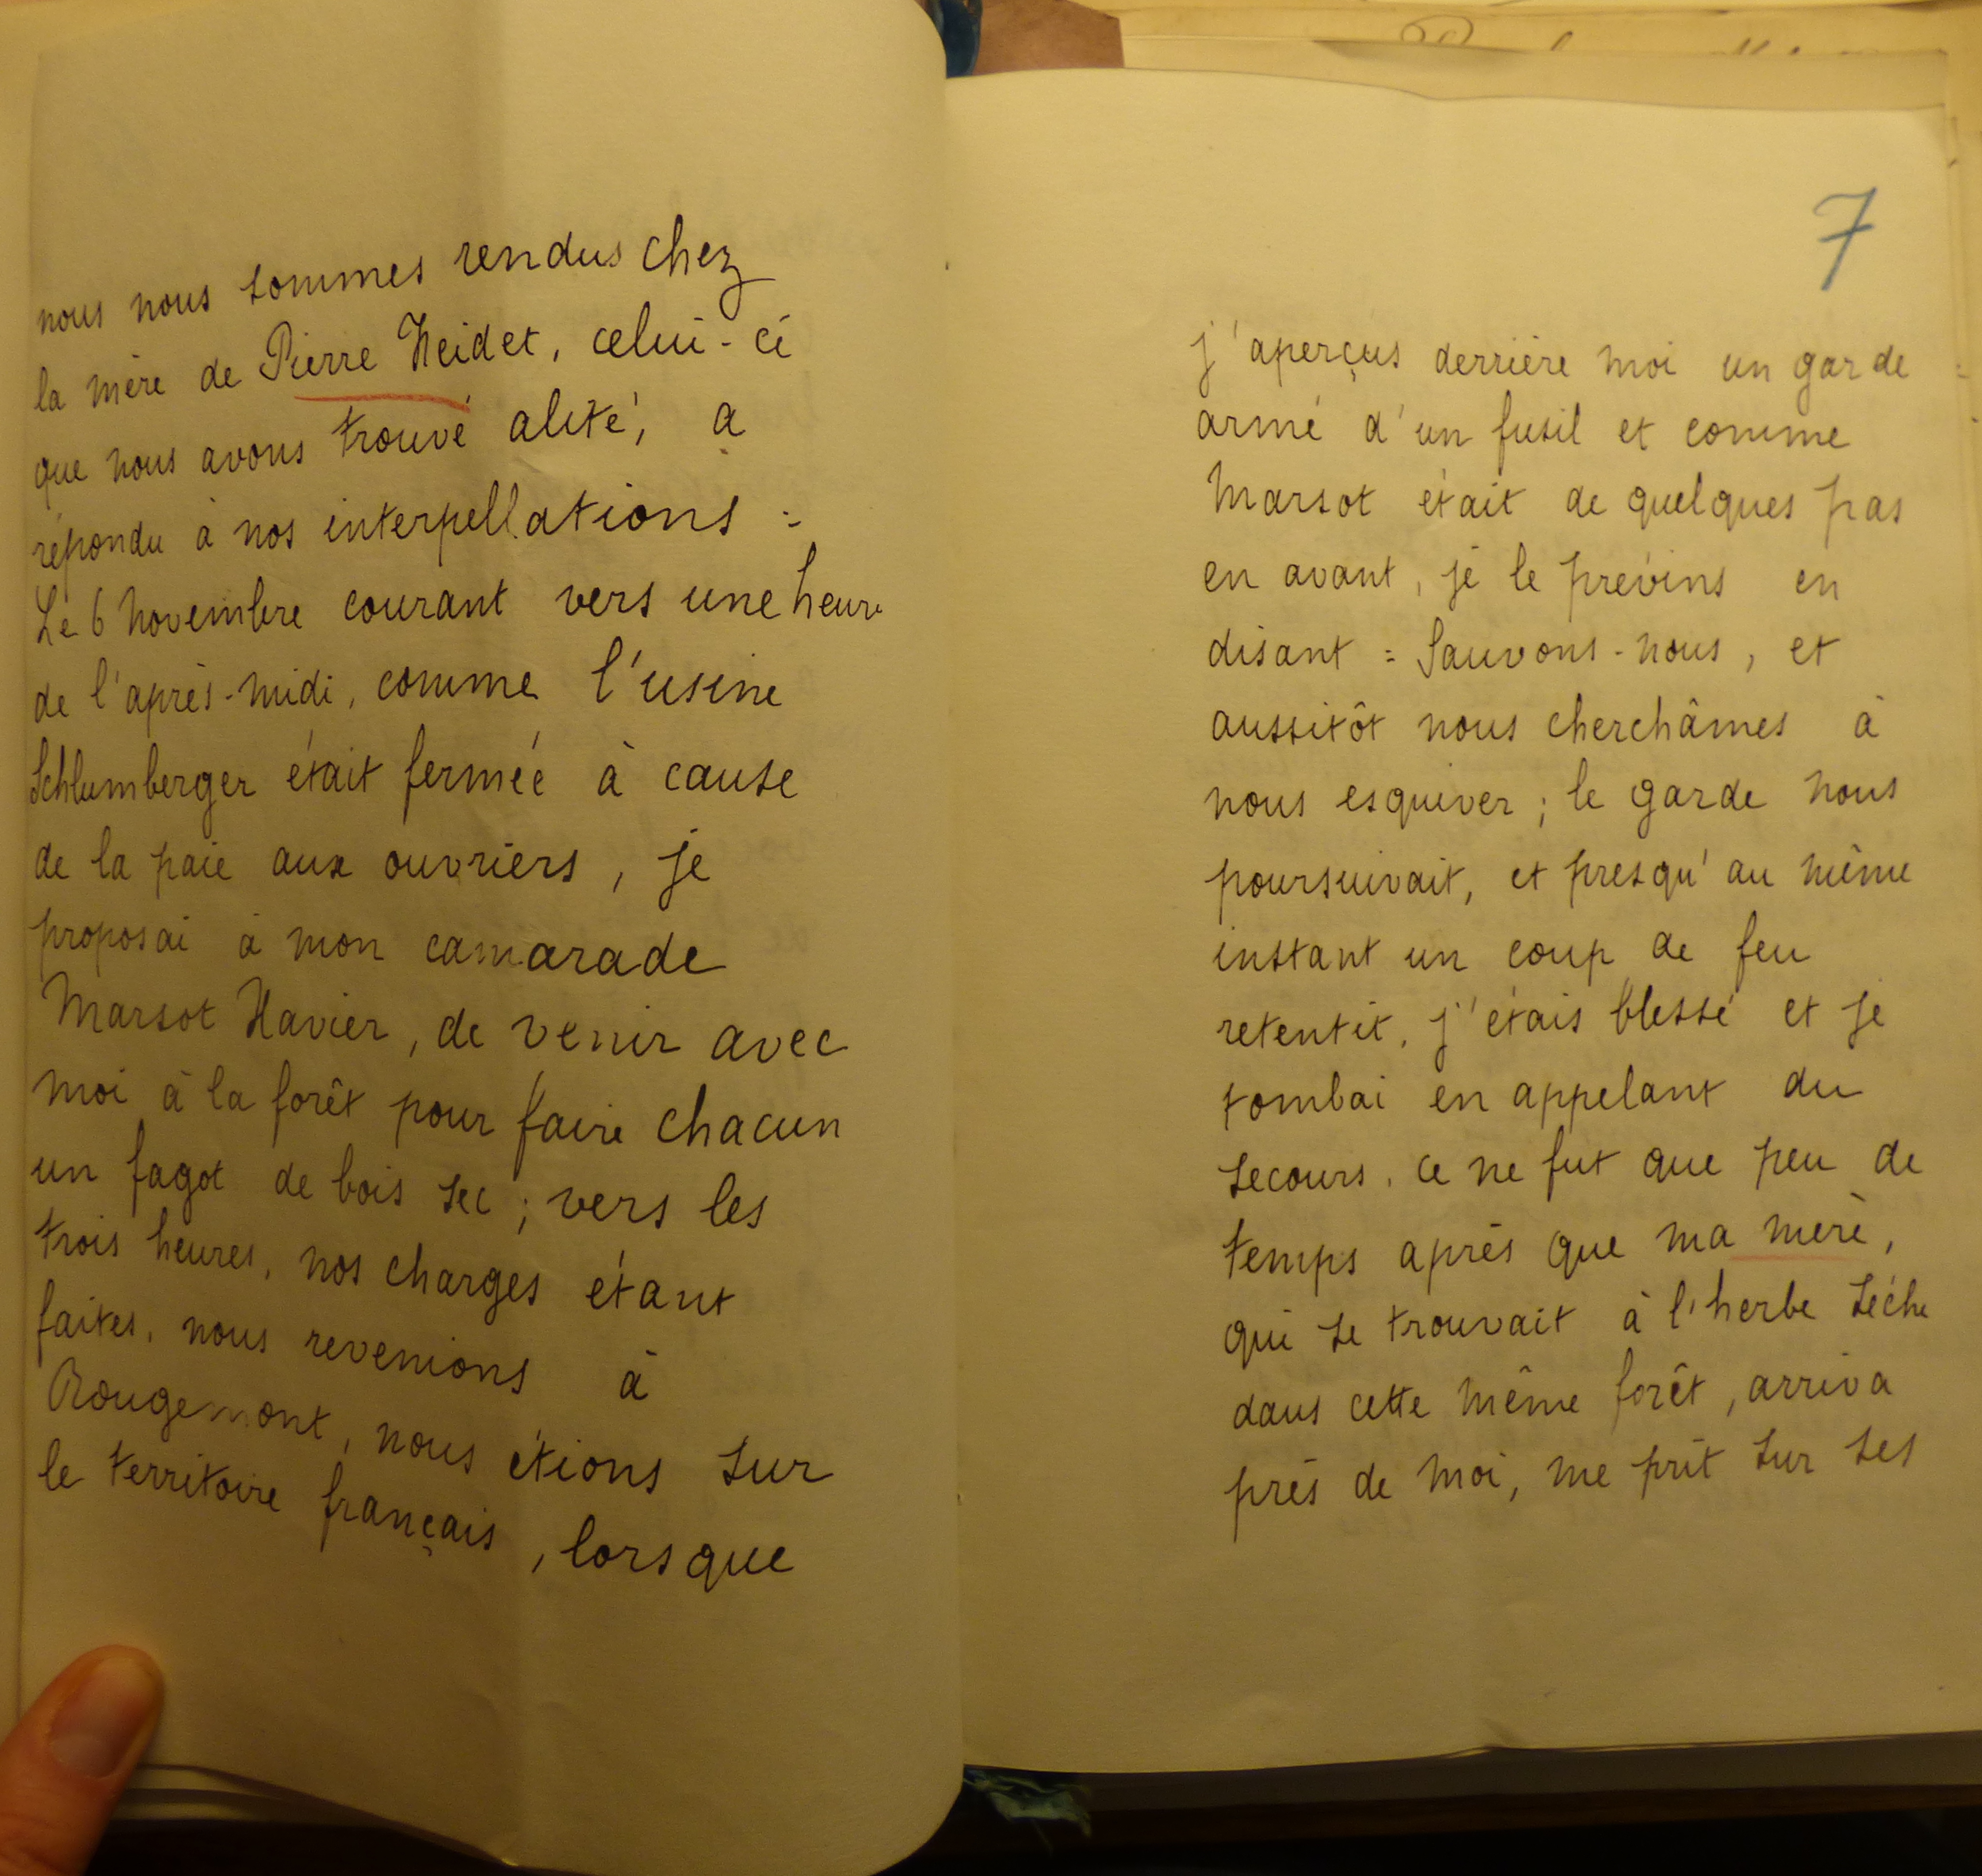 nous nous sommes rendus chez
la mère de Pierre Heidet, celui-ci
que nous avons trouvé alité, a
répondu à nos interpellations :
Le 6 Novembre courant vers une heure
de l'après-midi, comme l'usine
Schlumberger était fermée à cause
de la paie aux ouvriers, je
proposai à mon camarade
Marsot Xavier, de venir avec
moi à la forêt pour faire chacun
un fagot de bois sec ; vers les
trois heures, nos charges étant
faites, nous revenions à
Rougemont, nous étions sur
le territoire français, lorsque
7
j'aperçus derrière moi un garde
armé d'un fusil et comme
Marsot était de quelques pas
en avant, je le prévins en
disant : Sauvons-nous, et
aussitôt nous cherchâmes à
nous esquiver ; le garde nous
poursuivait, et presqu'au même
instant un coup de feu
retentit, j'étais blessé et je
tombai en appelant du
secours. ce ne fut que peu de
temps après que ma mère,
qui se trouvait à l'herbe sèche
dans cette même forêt, arriva
près de moi, me prit sur ses